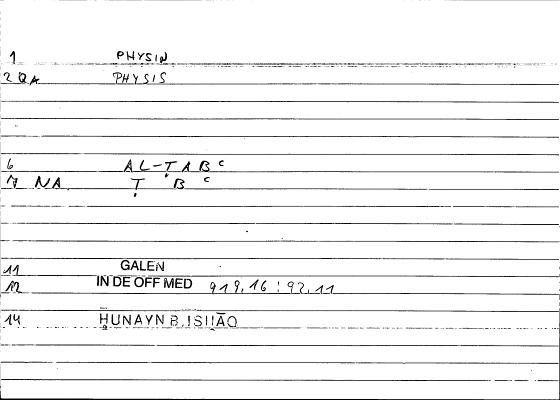 1 PHYSIN
2 QA PHYSIS
6 AL-ṬABᶜ
7 NA Ṭ B ᶜ
11 GALEN
12 IN DE OFF MED 919,16 : 92,11
14 ḤUNAYN B. ISḤĀQ